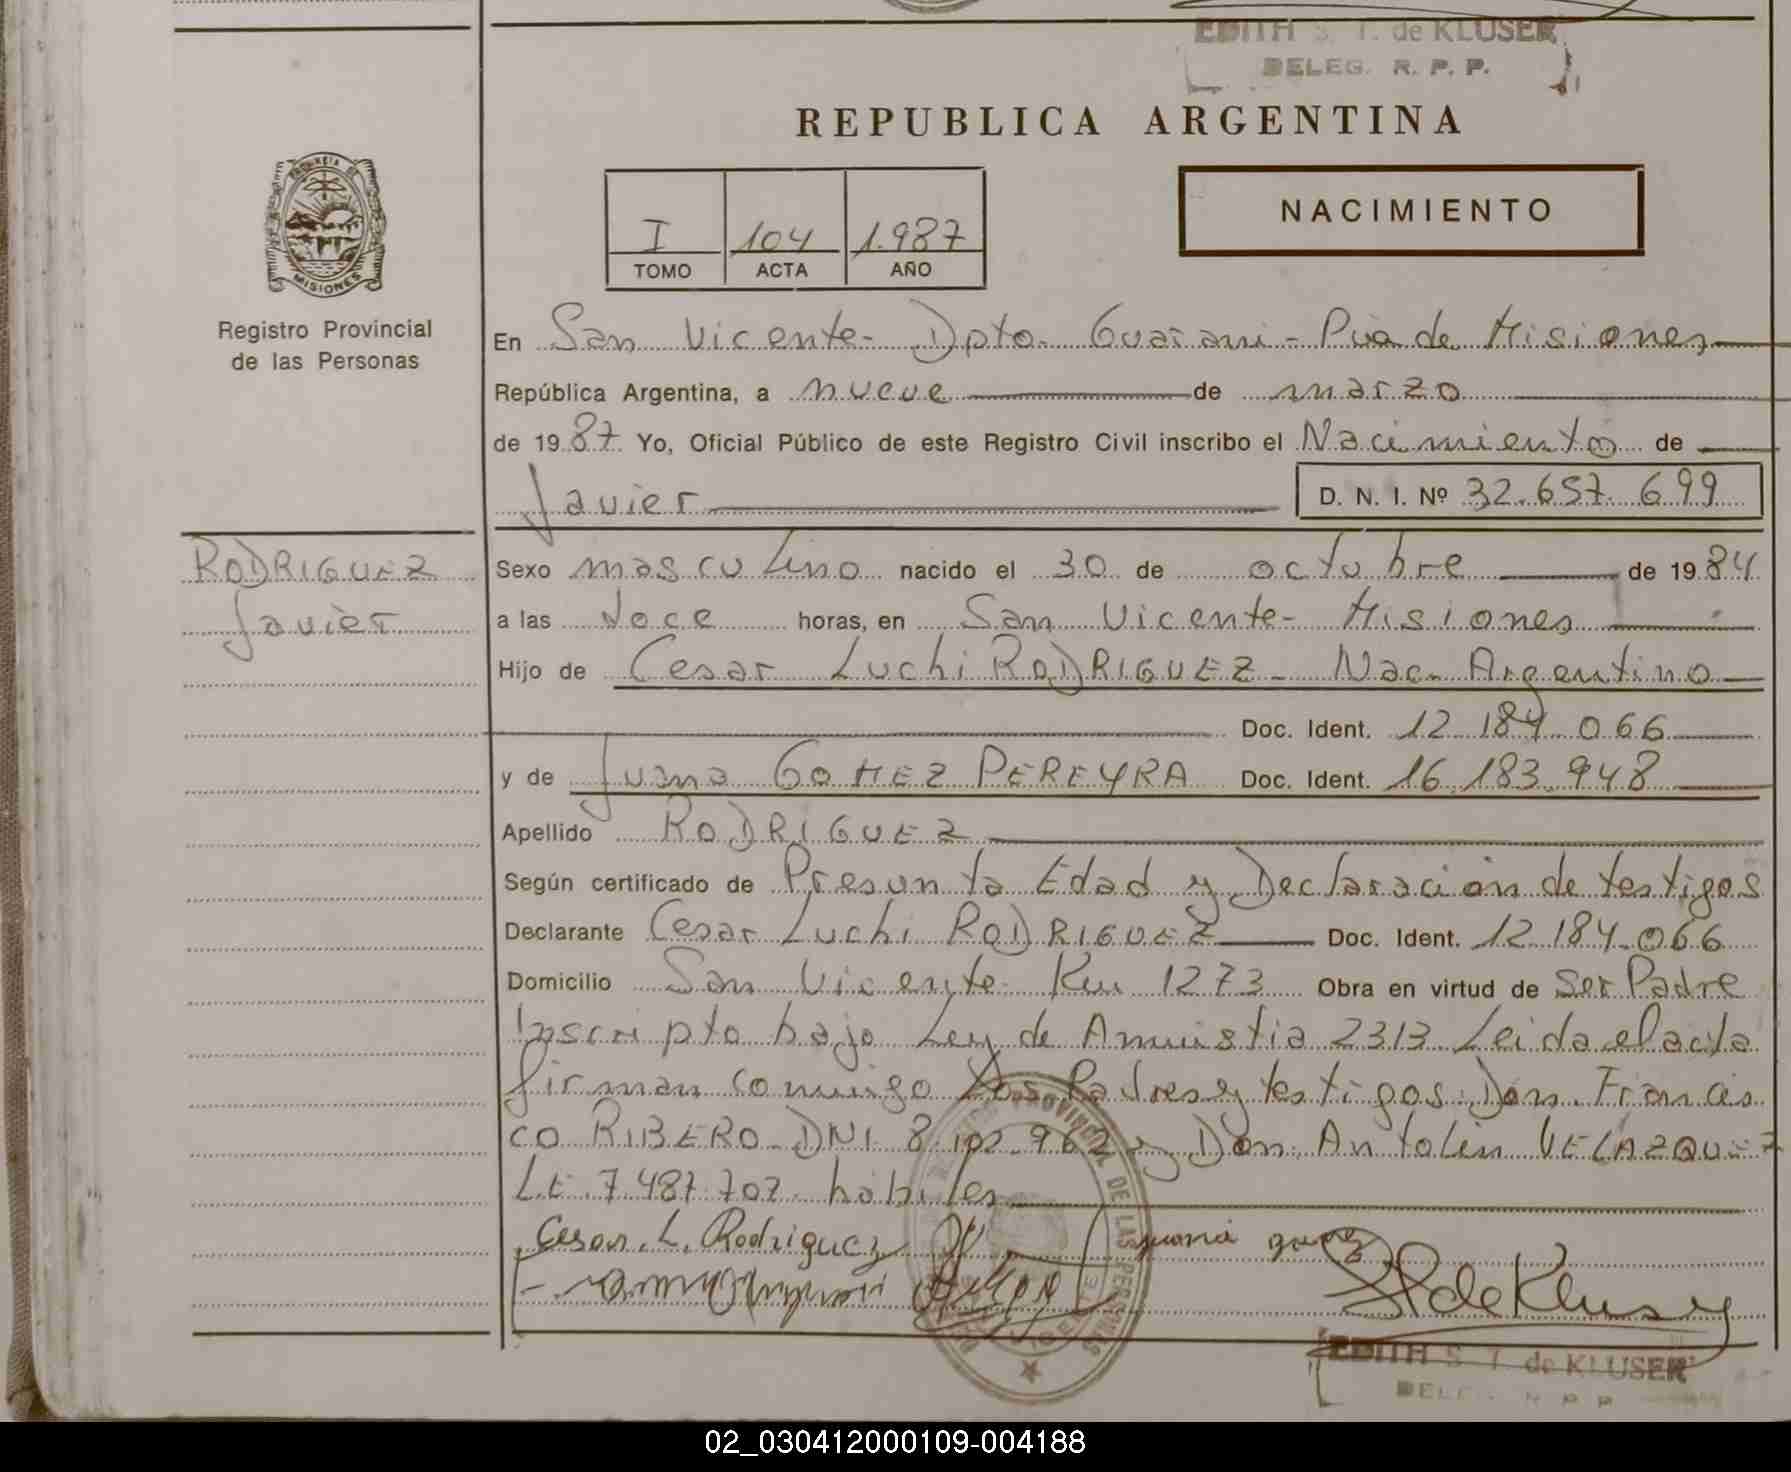 EDITH S. T. de KLUSER
DELEG. R. P. P.
REPUBLICA ARGENTINA
PROVINCIA DE
MISIONES
Registro Provincial
de las Personas
I 104 1.987
TOMO ACTA AÑO
NACIMIENTO
En San Vicente - Dpto. Guarani - Pcia de Misiones
República Argentina, a nueve de marzo
de 1987 Yo, Oficial Público de este Registro Civil inscribo el Nacimiento de
Javier D. N. I. Nº 32.657.699
RODRIGUEZ
Javier
Sexo masculino nacido el 30 de octubre de 1984
a las doce horas, en San Vicente - Misiones
Hijo de Cesar Luchi RODRIGUEZ - Nac. Argentino
Doc. Ident. 12.184.066
y de Juana GOMEZ PEREYRA Doc. Ident. 16.183.948
Apellido RODRIGUEZ
Según certificado de Presunta Edad y Declaración de testigos
Declarante Cesar Luchi RODRIGUEZ Doc. Ident. 12.184.066
Domicilio San Vicente Km 1273 Obra en virtud de Ser Padre
Inscripto bajo Ley de Amnistia 2313 Leida el acta
firman conmigo los Padres y testigos: Don Francis
co RIBERO DNI 8.102.962 y Don Antolin VELAZQUEZ
L.E. 7.487.702 habiles
Cesar L. Rodriguez Juana
S T de Kluser
EDITH S. T. de KLUSER
DELEG. R. P. P.
02_030412000109-004188